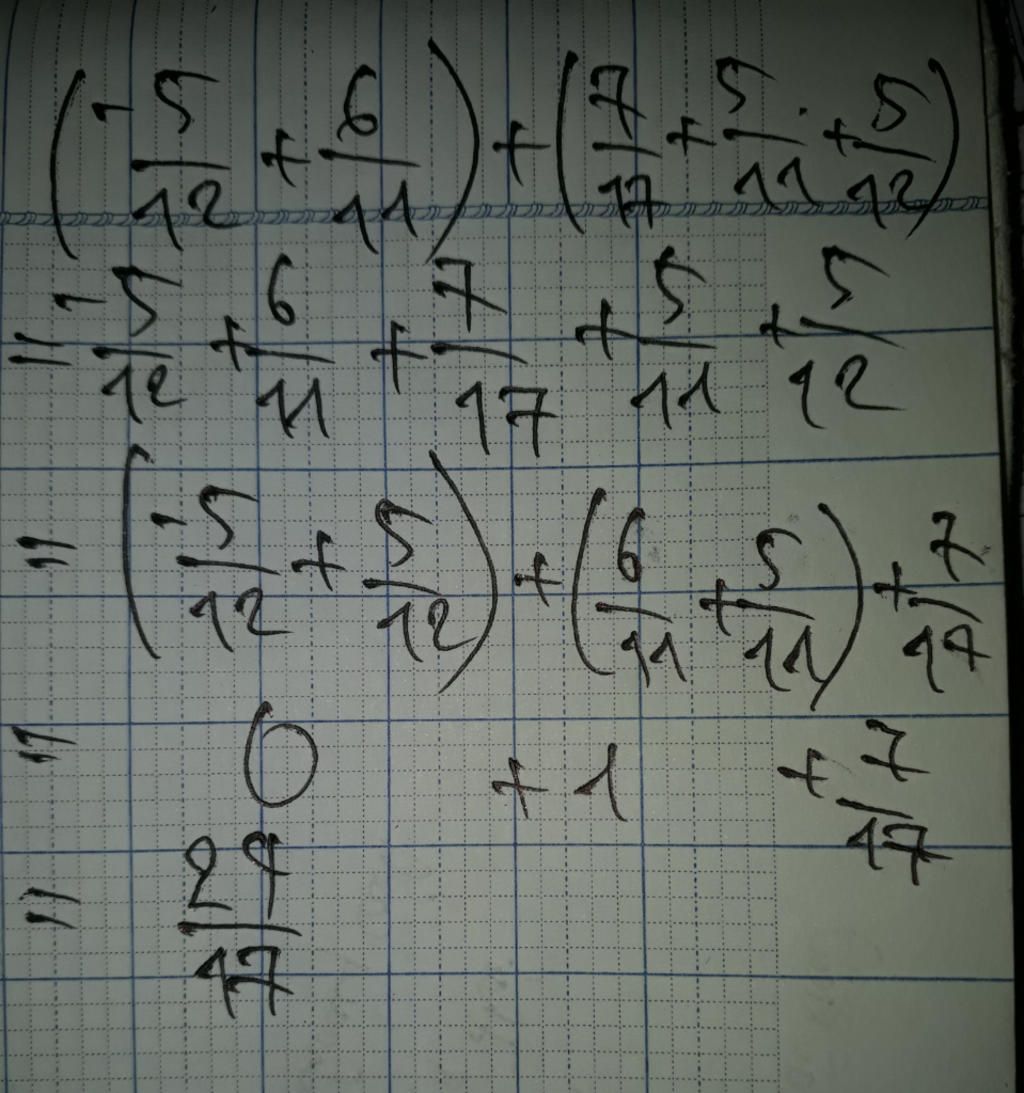 (-5/12 + 6/11) + (7/17 + 5/11 + 5/12)
= -5/12 + 6/11 + 7/17 + 5/11 + 5/12
= (-5/12 + 5/12) + (6/11 + 5/11) + 7/17
= 0 + 1 + 7/17
= 27/17